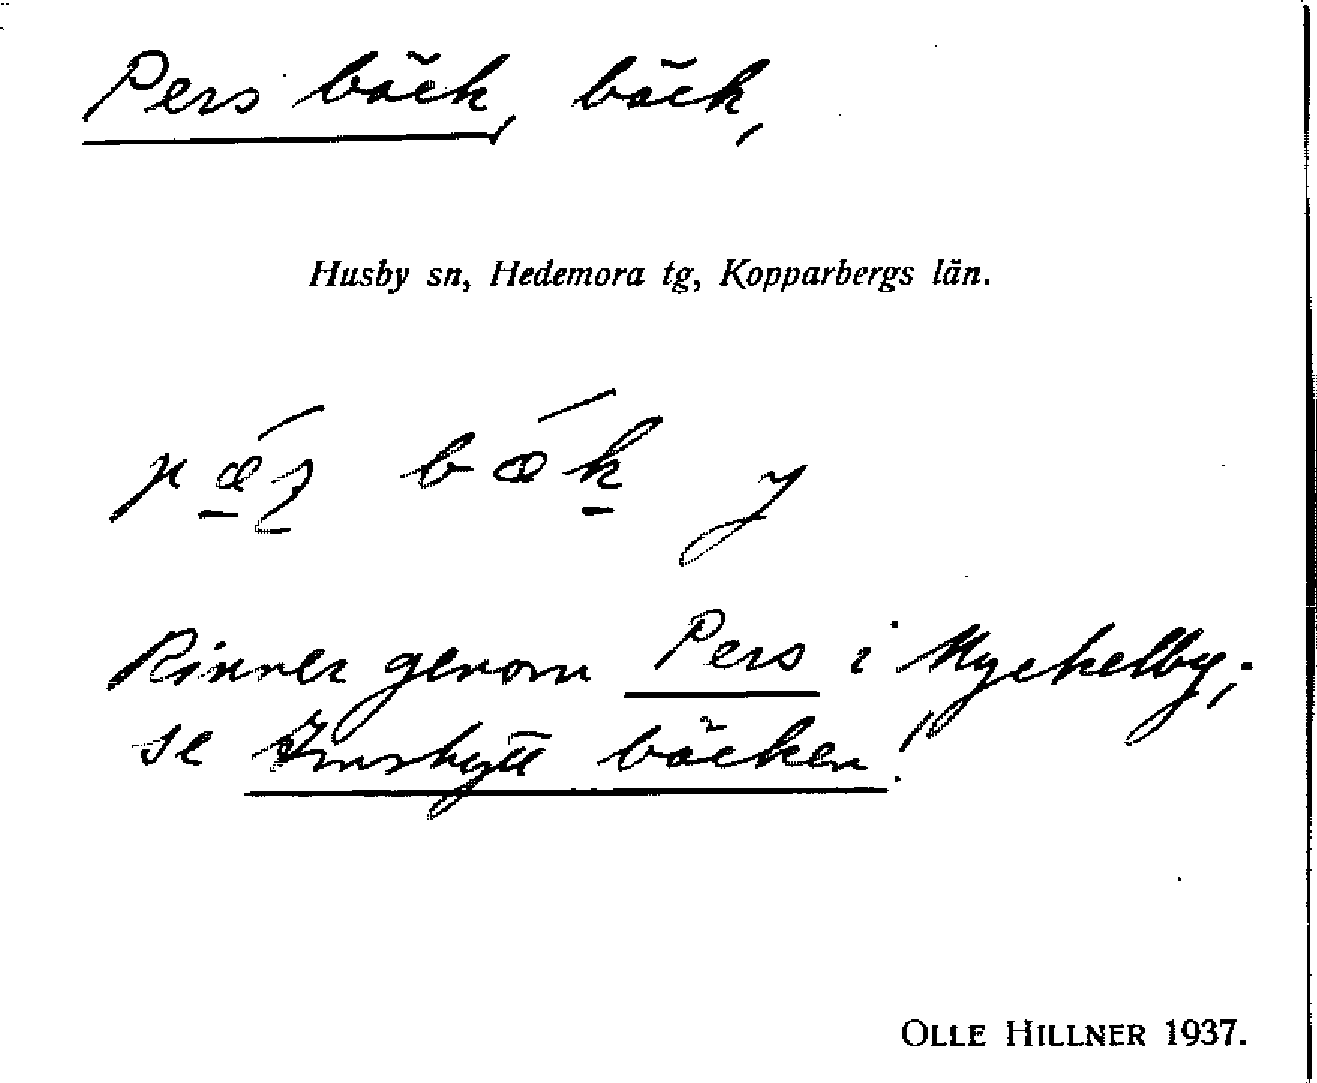 Pers bäck, bäck,
Husby sn, Hedemora tg, Kopparbergs län.
Rinner genom Pers i Myckelby;
se bäcken!
OLLE HILLNER 1937.